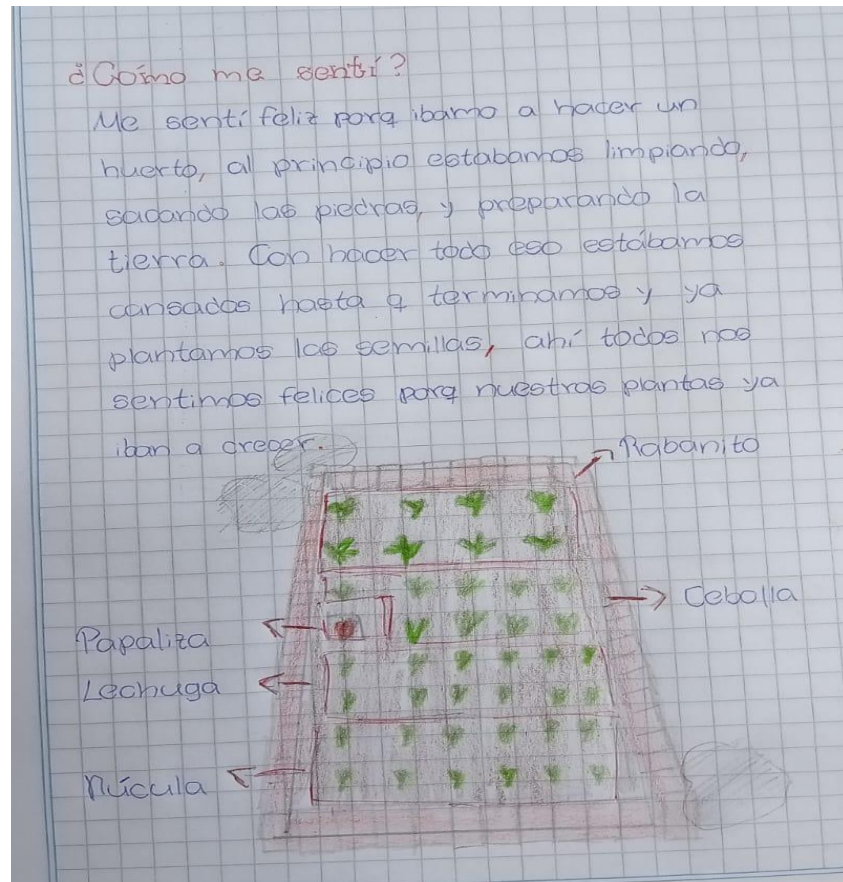 ¿Cómo me sentí?
Me sentí feliz porq ibamo a hacer un
huerto, al principio estabamos limpiando,
sacando las piedras, y preparando la
tierra. Con hacer todo eso estábamos
cansados hasta q terminamos y ya
plantamos las semillas, ahí todos nos
sentimos felices porq nuestras plantas ya
iban a crecer.
Rabanito
Cebolla
Papaliza
Lechuga
Rúcula